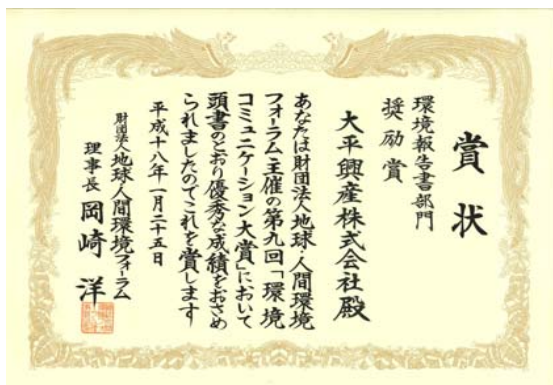 賞状
環境報告書部門
奨励賞
大平興産株式会社殿
あなたは財団法人地球・人間環境
フォーラム主催の第九回「環境
コミュニケーション大賞」において
頭書のとおり優秀な成績をおさめ
られましたのでこれを賞します
平成十八年一月二十五日
財団法人地球・人間環境フォーラム
理事長 岡崎洋